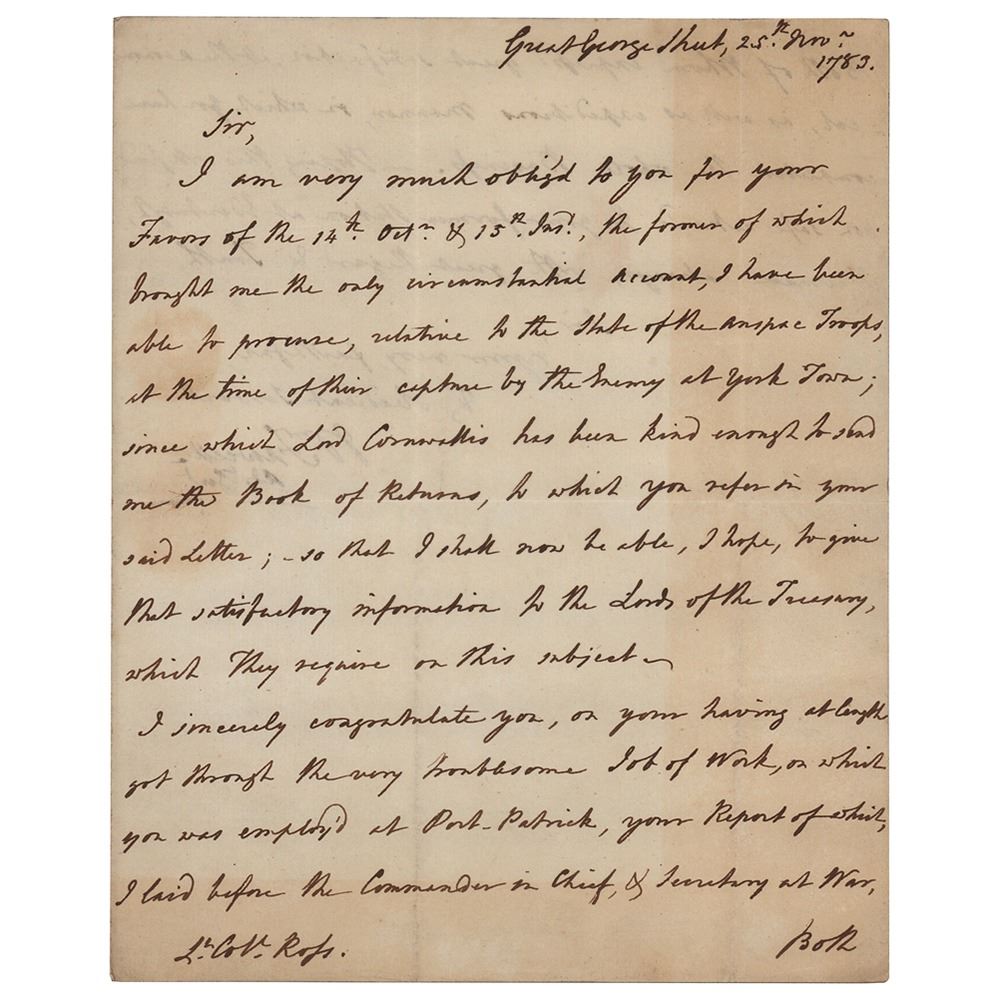 Great George Street, 25.th Novr.
1783.
Sir,
I am very much oblig'd to you for your
Favors of the 14th. Octr. & 15th. Inst., the former of which
brought me the only circumstantial Account, I have been
able to procure, relative to the State of the Anspac Troops,
at the time of their capture by the Enemy at York Town;
since which Lord Cornwallis has been kind enough to send
me the Book of Returns, to which you refer in your
said Letter; - so that I shall now be able, I hope, to give
that satisfactory information to the Lords of the Treasury,
which They require on this subject.
I sincerely congratulate you, on your having at length
got through the very troublesome Job of Work, on which
you was employ'd at Port-Patrick, your Report of which,
I laid before the Commander in Chief, & Secretary at War,
Both
Lt. Coll. Ross.